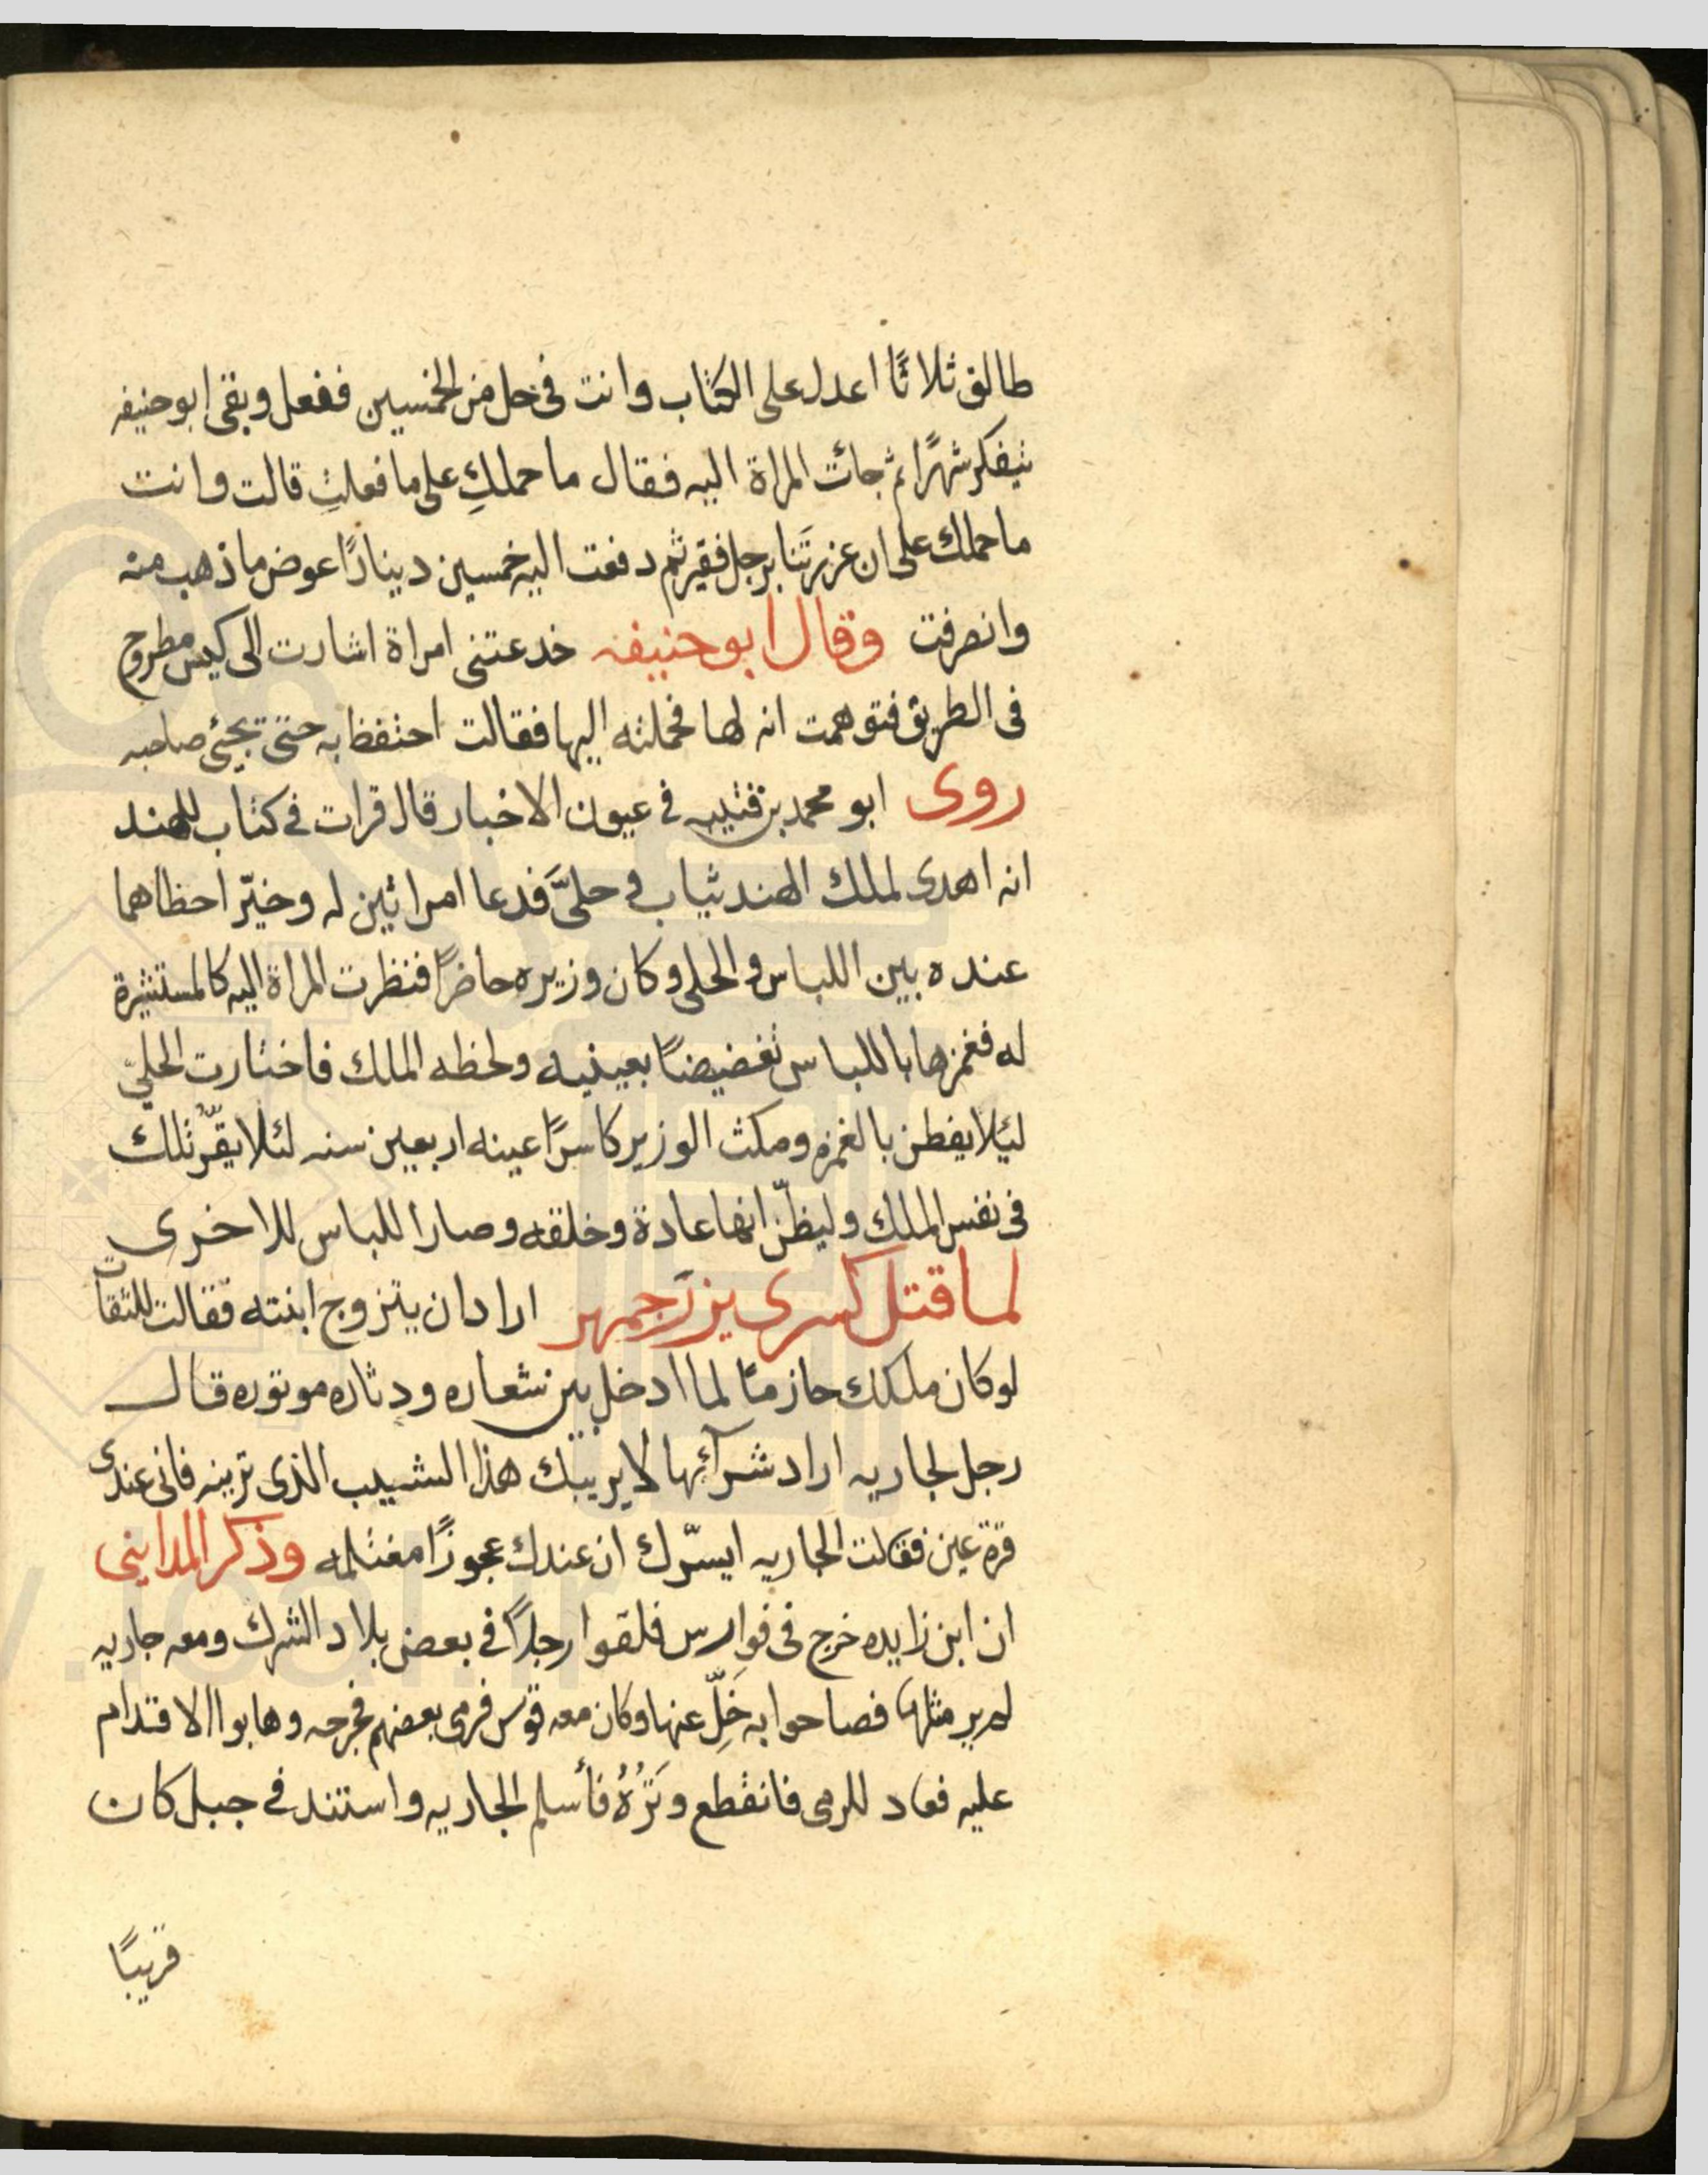 طالق ثلاثًا اعدل على الكتاب وانت فى حل من الخمسين ففعل وبقى ابو حنيفه
يتفكر شهرًا ثم جائت المراة اليه فقال ما حملكِ على ما فعلتِ قالت وانت
ما حملك على ان غررتَنا برجل فقير ثم دفعت اليه خمسين دينارًا عوض ما ذهب منه
وانصرفت وقال ابو حنيفه خدعتنى امراة اشارت الى كيس مطروح
فى الطريق فتوهمت انه لها فحملته اليها فقالت احتفظ به حتى يجئ صاحبه
روى ابو محمد بن قتيبه فى عيون الاخبار قال قرات فى كتاب للهند
انه اهدى لملك الهند ثياب و حلىّ فدعا امراتين له وخيّر احظاهما
عنده بين اللباس و الحلى وكان وزيره حاضرًا فنظرت المراة اليه كالمستشيرة
له فغمزها باللباس تغضيضًا بعينيه ولحظه الملك فاختارت الحلىّ
لئلا يفطن بالغمزه ومكث الوزير كاسرًا عينه اربعين سنه لئلا يقرّ تلك
فى نفس الملك وليظنّ انها عادة وخلقه وصار اللباس للاخرى
لما قتل كسرى بزرجمهر اراد ان يتزوج ابنته فقالت للثقات
لو كان ملكك حازمًا لما ادخل بين شعاره ودثاره موتوره قال
رجل لجاريه اراد شرآئها لا يريبك هذا الشيب الذى ترينه فانى عندى
قرة عين فقالت الجاريه ايسرّك ان عندك عجوزًا مغتلمه وذكر المداينى
ان ابن زايده خرج فى فوارس فلقوا رجلًا فى بعض بلاد الشرك ومعه جاريه
لم ير مثلها فصاحوا به خَلِّ عنها وكان معه قوس فرمى بعضهم فجرحه وهابوا الاقدام
عليه فعاد للرمى فانقطع وَتَرُهُ فأسلم الجاريه واستند فى جبل كان
قريبًا